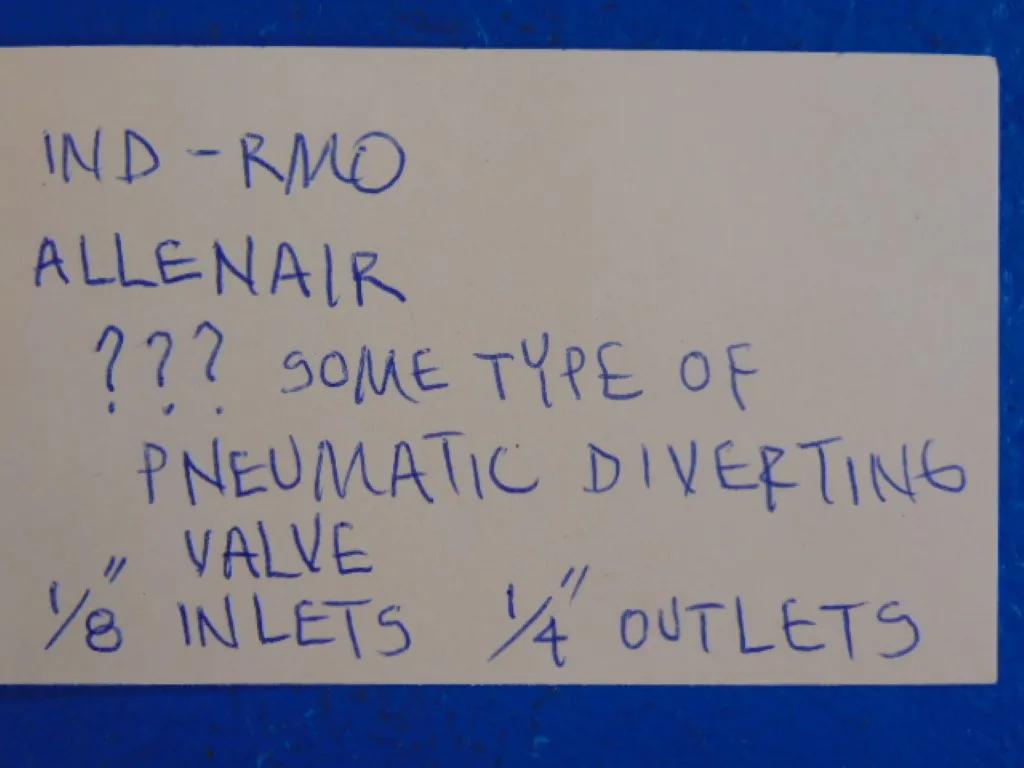 IND-RMO
ALLENAIR
??? SOME TYPE OF
PNEUMATIC DIVERTING
VALVE
1/8" INLETS 1/4" OUTLETS